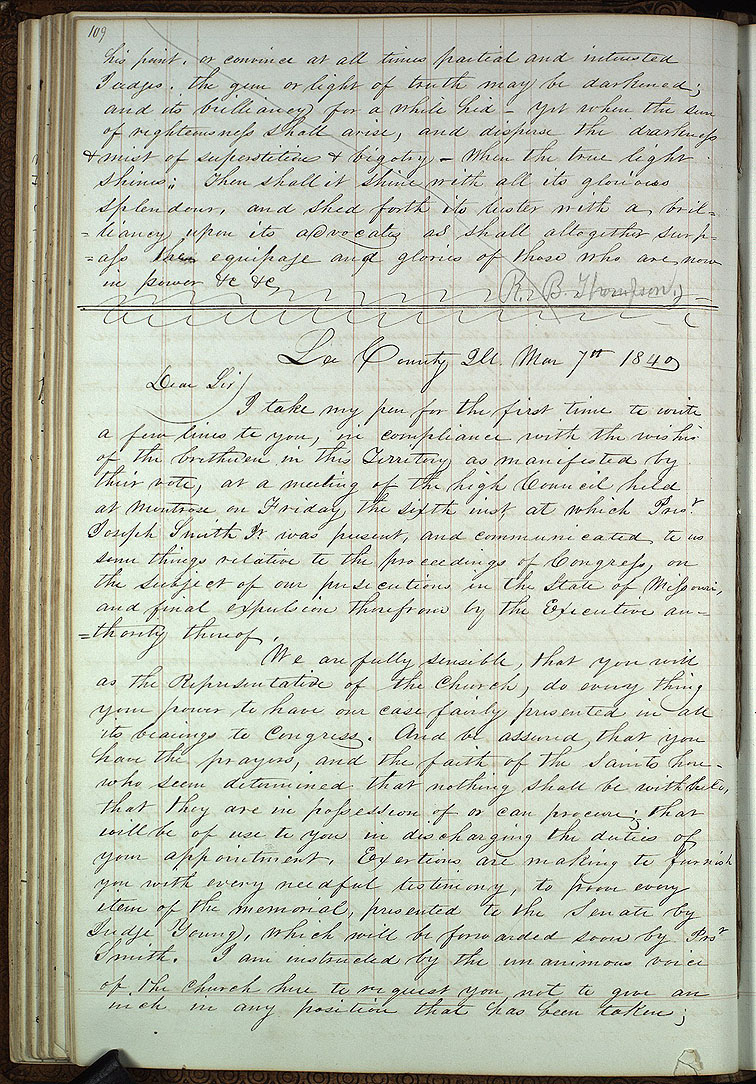 109
his point. or convince at all times partial and interested
Judges. the gem or light of truth may be darkened;
and its brilliancy for a while hid – yet when the sun
of righteousness shall arise, and disperse the darkness
& mist of superstition & bigotry – When the true light
shines;; Then shall it shine with all its glorious
splendour, and shed forth its luster with a bril-
=liancy upon its advocates as shall altogether surp-
=ass the equipage and glories of those who are now
in power &c &c
R. B. Thompson.
Lee County Ill. Mar 7th 1840
Dear Sir/
I take my pen for the first time to write
a few lines to you, in compliance with the wishes
of the brethren in this Territory as manifested by
their vote, at a meeting of the high Council held
at Montrose on Friday the sixth inst, at which Prest
Joseph Smith Jr was present, and communicated to us
some things relative to the proceedings of Congress, on
the subject of our persecutions in the State of Missouri,
and final expulsion therefrom by the Executive au-
=thority thereof.
We are fully sensible, that you will
as the Representative of the Church, do every thing
your power to have our case fairly presented in all
its bearings to Congress. And be assured that you
have the prayers, and the faith of the Saints here-
who seem determined that nothing shall be withheld,
that they are in possession of or can procure; that
will be of use to you in discharging the duties of
your appointment. Exertions are making to furnish
you with every needful testimony, to prove every
item of the memorial, presented to the Senate by
Judge Young, which will be forwarded soon by Prest
Smith. I am instructed by the unanimous voice
of the Church here to request you not to give an
inch in any position that has been taken;